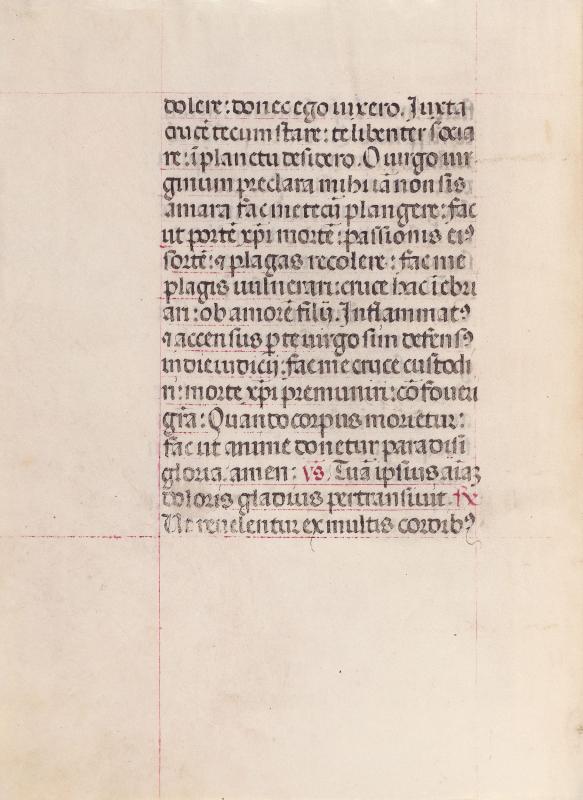 dolere: donec ego uixero. Juxta
crucē tecum stare: te libenter socia
re: ī planctu desidero. O uirgo uir
ginum preclara mihi iā non sis
amara fac me tecū plangere: fac
ut portē xp̄i mortē: passionis eiꝰ
sortē: ⁊ plagas recolere: fac me
plagis uulnerari: cruce hac īebri
ari: ob amorē filij. Inflammatꝰ
⁊ accensus ꝑ te uirgo sim defensꝰ
in die iudicij: fac me cruce custodi
ri: morte xp̄i premuniri: cōfoueri
gr̄a: Quando corpus morietur:
fac ut anime donetur paradisi
gloria. amen: vs. Tuā ipsius aīaꝫ
doloris gladius pertransiuit. ℞
Ut reuelentur ex multis cordibꝰ